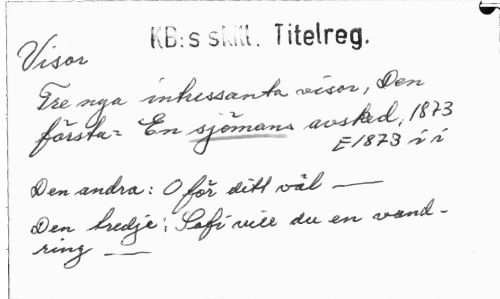 KB:s skill. Titelreg.
Visor
Tre nya intressanta visor, Den
första: En sjömans avsked, 1873
E 1873 i i
Den andra: O för ditt väl —
Den tredje: Sofi vill du en vand-
ring —